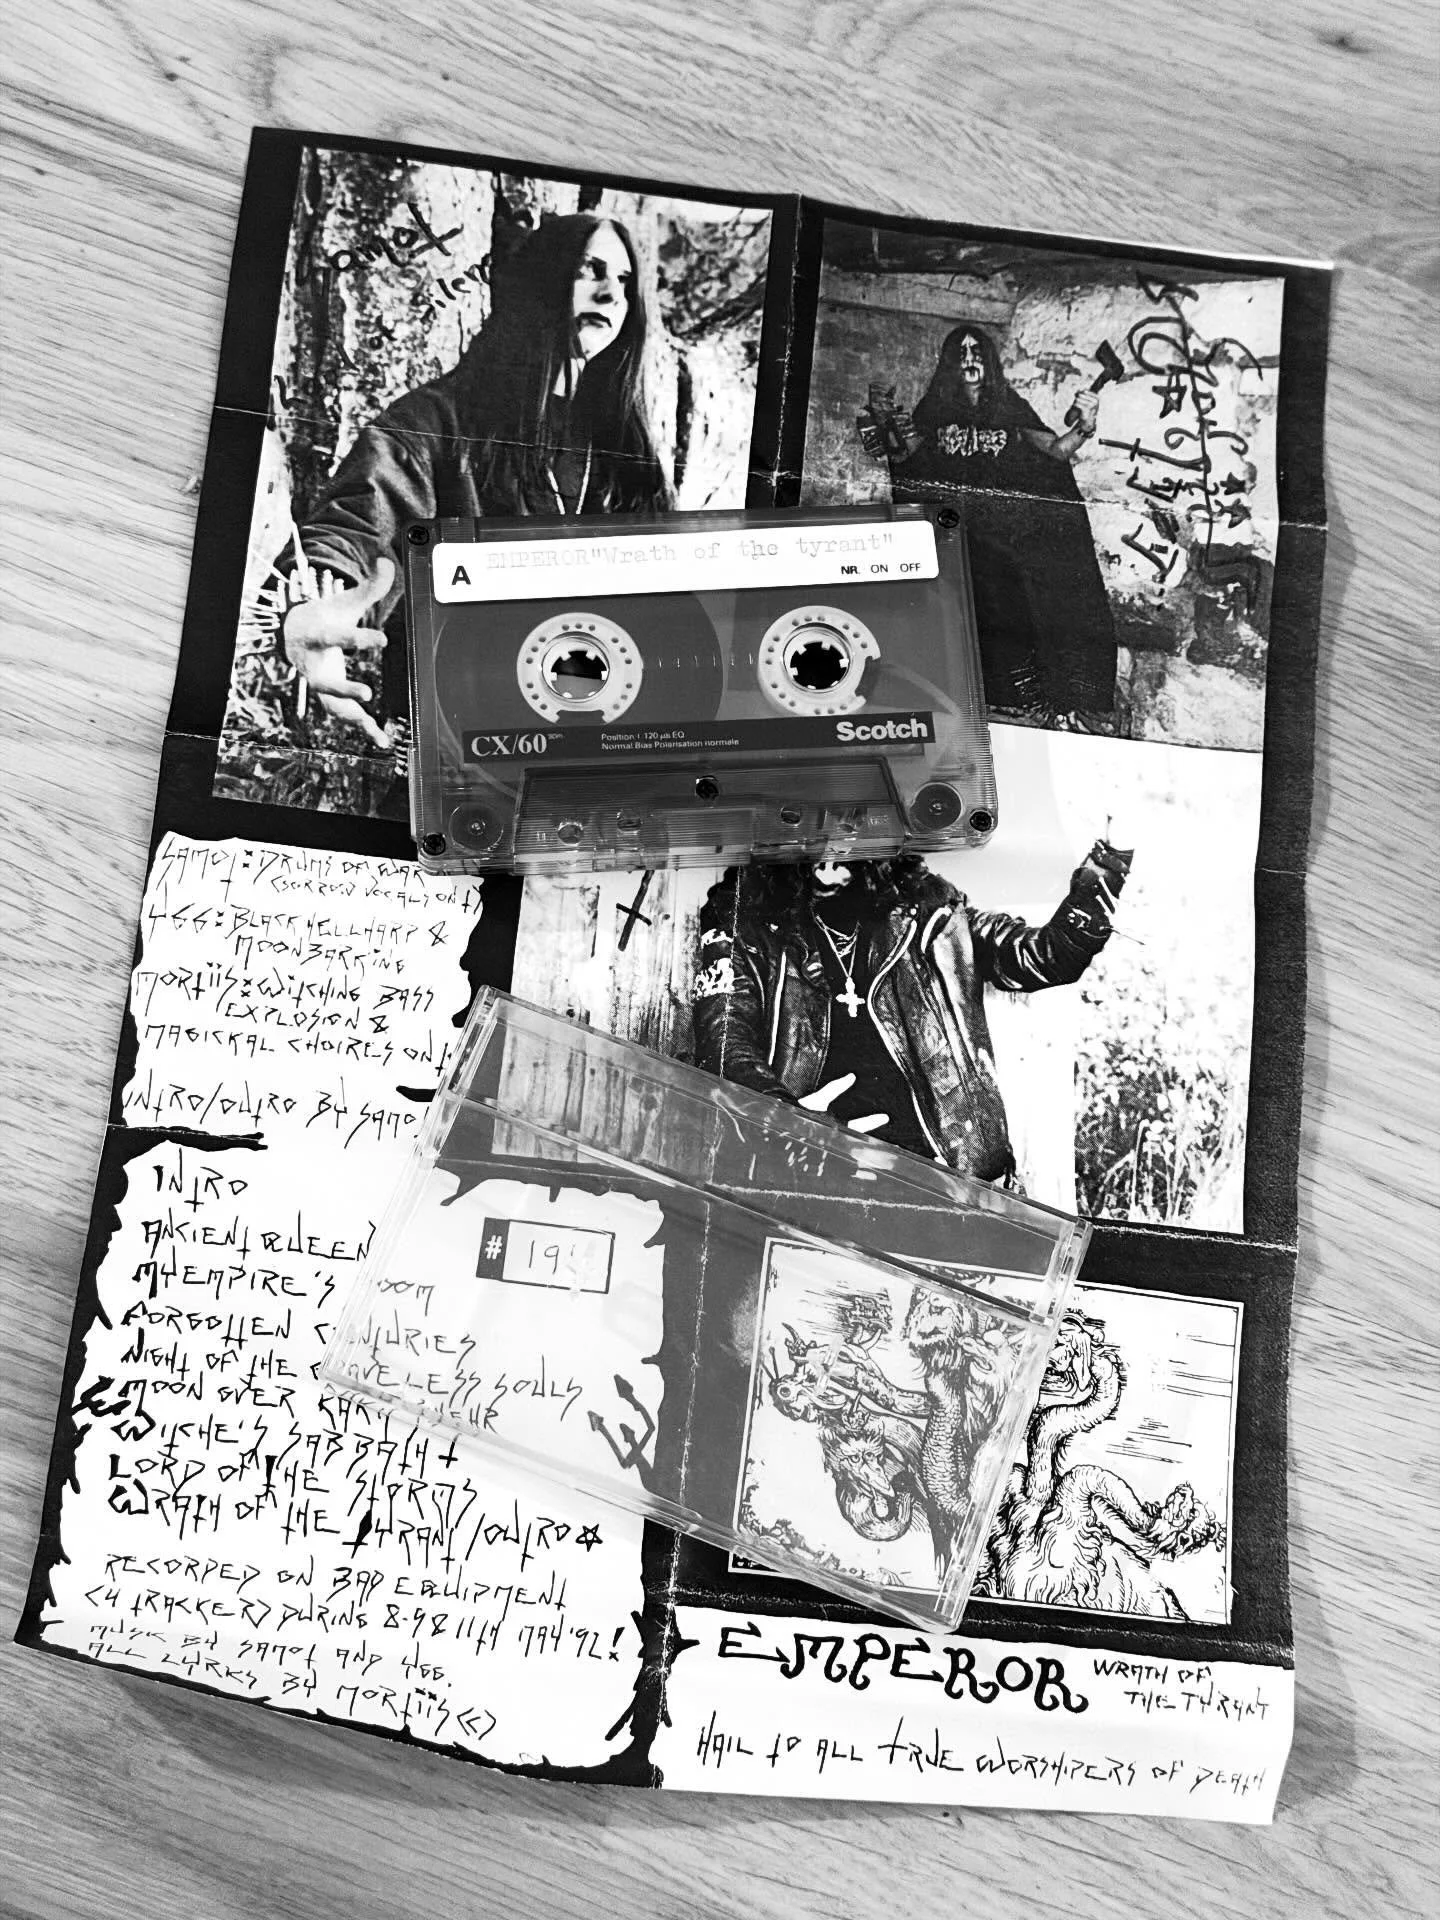 EMPEROR"Wrath of the tyrant"
A
NR. ON OFF
CX/60
Position I 120 µs EQ
Normal Bias Polarisation normale
Scotch
SAMOT: DRUMS OF WAR
YGG: BLACK HELLHARP &
MOONBARKING
MORTIIS: WITCHING BASS
EXPLOSION &
MAGICKAL CHOIRES ON
INTRO/OUTRO BY SAMOT
INTRO
ANCIENT QUEEN
MY EMPIRE'S DOOM
FORGOTTEN CENTURIES
NIGHT OF THE GRAVELESS SOULS
MOON OVER KARA-SHEHR
WITCHE'S SABBATH
LORD OF THE STORMS
WRATH OF THE TYRANT/OUTRO
RECORDED ON BAD EQUIPMENT
(4 TRACKER) DURING 8-9 & 11TH MAY '92!
MUSIK BY SAMOT AND YGG.
ALL LYRKS BY MORTIIS (C)
#
EMPEROR WRATH OF
THE TYRANT
HAIL TO ALL TRUE WORSHIPERS OF DEATH